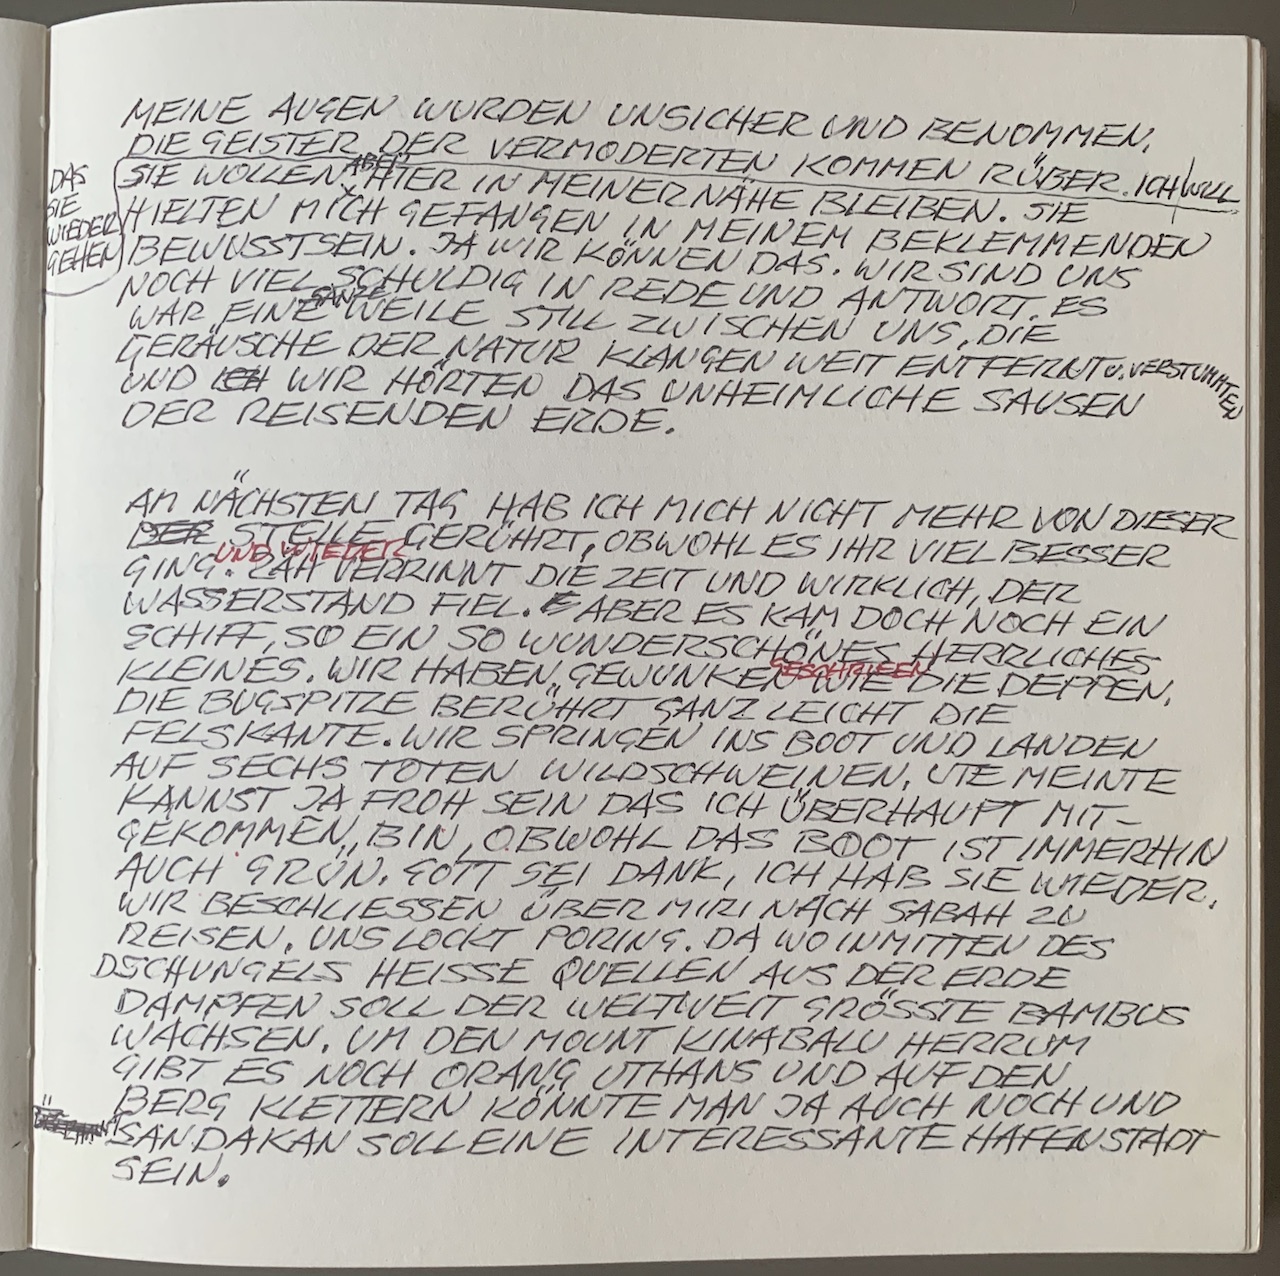 MEINE AUGEN WURDEN UNSICHER UND BENOMMEN,
DIE GEISTER DER VERMODERTEN KOMMEN RÜBER. ICH WILL
DAS
SIE
WIEDER
GEHEN
ABER
SIE WOLLEN HIER IN MEINER NÄHE BLEIBEN. SIE
HIELTEN MICH GEFANGEN IN MEINEM BEKLEMMENDEN
BEWUSSTSEIN. JA WIR KÖNNEN DAS. WIR SIND UNS
NOCH VIEL SCHULDIG IN REDE UND ANTWORT. ES
GANZE
WAR EINE WEILE STILL ZWISCHEN UNS, DIE
GERÄUSCHE DER NATUR KLANGEN WEIT ENTFERNT U. VERSTUMMTEN
UND ICH WIR HÖRTEN DAS UNHEIMLICHE SAUSEN
DER REISENDEN ERDE.
AM NÄCHSTEN TAG HAB ICH MICH NICHT MEHR VON DIESER
DER STELLE GERÜHRT, OBWOHL ES IHR VIEL BESSER
UND WIEDER
GING. ZÄH VERRINNT DIE ZEIT UND WIRKLICH, DER
WASSERSTAND FIEL. ABER ES KAM DOCH NOCH EIN
SCHIFF, SO EIN SO WUNDERSCHÖNES HERRLICHES
GESCHRIEEN
KLEINES. WIR HABEN, GEWUNKEN WIE DIE DEPPEN.
DIE BUGSPITZE BERÜHRT GANZ LEICHT DIE
FELSKANTE. WIR SPRINGEN INS BOOT UND LANDEN
AUF SECHS TOTEN WILDSCHWEINEN. UTE MEINTE
KANNST JA FROH SEIN DAS ICH ÜBERHAUPT MIT-
GEKOMMEN, BIN, OBWOHL DAS BOOT IST IMMERHIN
AUCH GRÜN. GOTT SEI DANK, ICH HAB SIE WIEDER.
WIR BESCHLIESSEN ÜBER MIRI NACH SABAH ZU
REISEN. UNS LOCKT PORING. DA WO INMITTEN DES
DSCHUNGELS HEISSE QUELLEN AUS DER ERDE
DAMPFEN SOLL DER WELTWEIT GRÖSSTE BAMBUS
WACHSEN. UM DEN MOUNT KINABALU HERRUM
GIBT ES NOCH ORANG UTHANS UND AUF DEN
BERG KLETTERN KÖNNTE MAN JA AUCH NOCH UND
SANDAKAN SOLL EINE INTERESSANTE HAFENSTADT
SEIN.